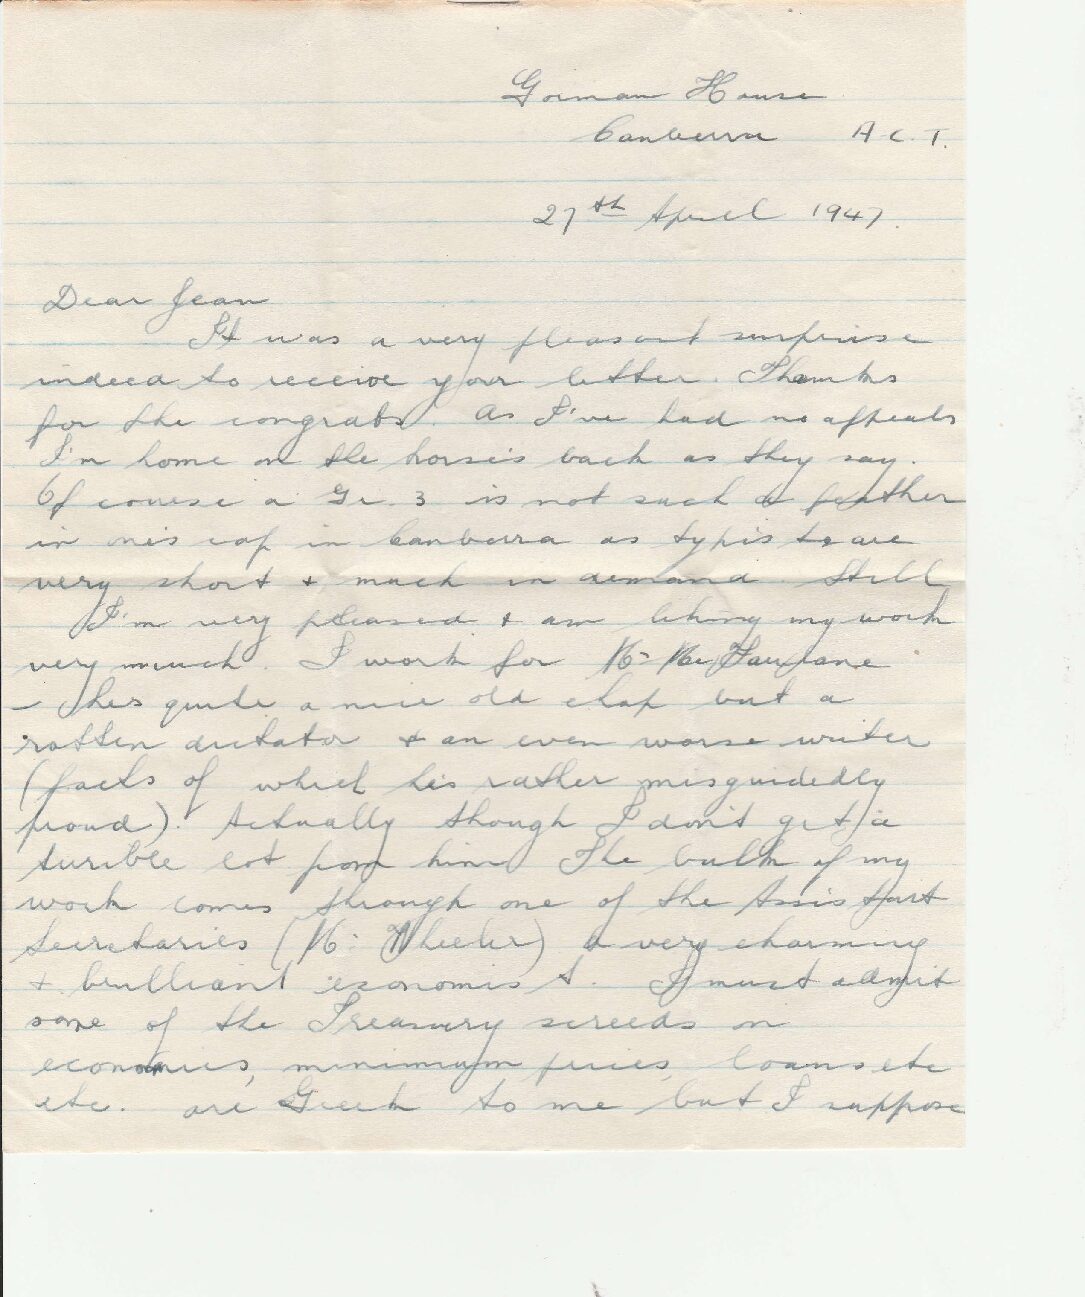 Gorman House
Canberra A.C.T.
27th April 1947.
Dear Jean
It was a very pleasant surprise
indeed to receive your letter. Thanks
for the congrats. As I've had no appeals
I'm home on the horse's back as they say.
Of course a Gr. 3 is not such a feather
in one's cap in Canberra as typists are
very short & much in demand. Still
I'm very pleased & am liking my work
very much. I work for Mr McFarlane
- he's quite a nice old chap but a
rotten dictator & an even worse writer
(facts of which he's rather misguidedly
proud). Actually though I don't get a
terrible lot from him. The bulk of my
work comes through one of the Assistant
Secretaries (Mr Wheeler) a very charming
& brilliant economist. I must admit
some of the Treasury screeds on
economics, minimum prices, loans etc
etc. are Greek to me but I suppose